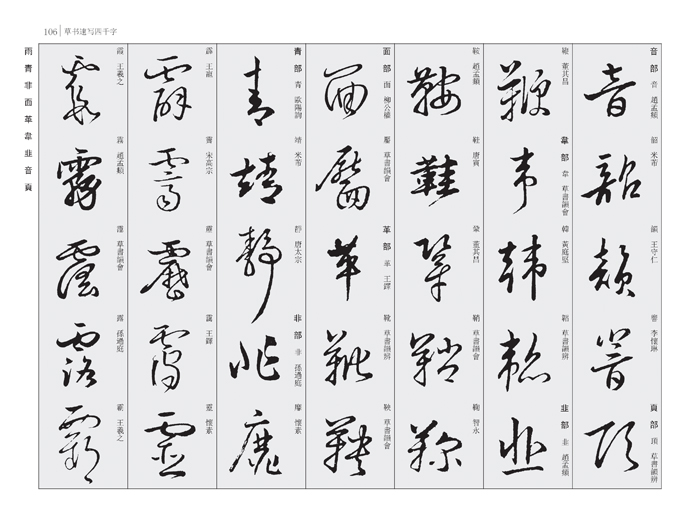 106 草书速写四千字
雨 青 非 面 革 韋 韭 音 頁
音部 音 趙孟頫
韶 米芾
韻 王守仁
響 李懷琳
頁部 頂 草書韻辨
鞭 董其昌
韋部 韋 草書韻會
韓 黃庭堅
韜 草書韻辨
韭部 韭 趙孟頫
鞍 趙孟頫
鞋 唐寅
鞏 董其昌
鞘 草書韻會
鞠 智永
面部 面 柳公權
靨 草書韻會
革部 革 王鐸
靴 草書韻辨
鞅 草書韻會
青部 青 歐陽詢
靖 米芾
靜 唐太宗
非部 非 孫過庭
靡 懷素
霹 王寵
霽 宋高宗
靂 草書韻會
靄 王鐸
靈 懷素
霞 王羲之
霧 趙孟頫
霪 草書韻會
露 孫過庭
霸 王羲之